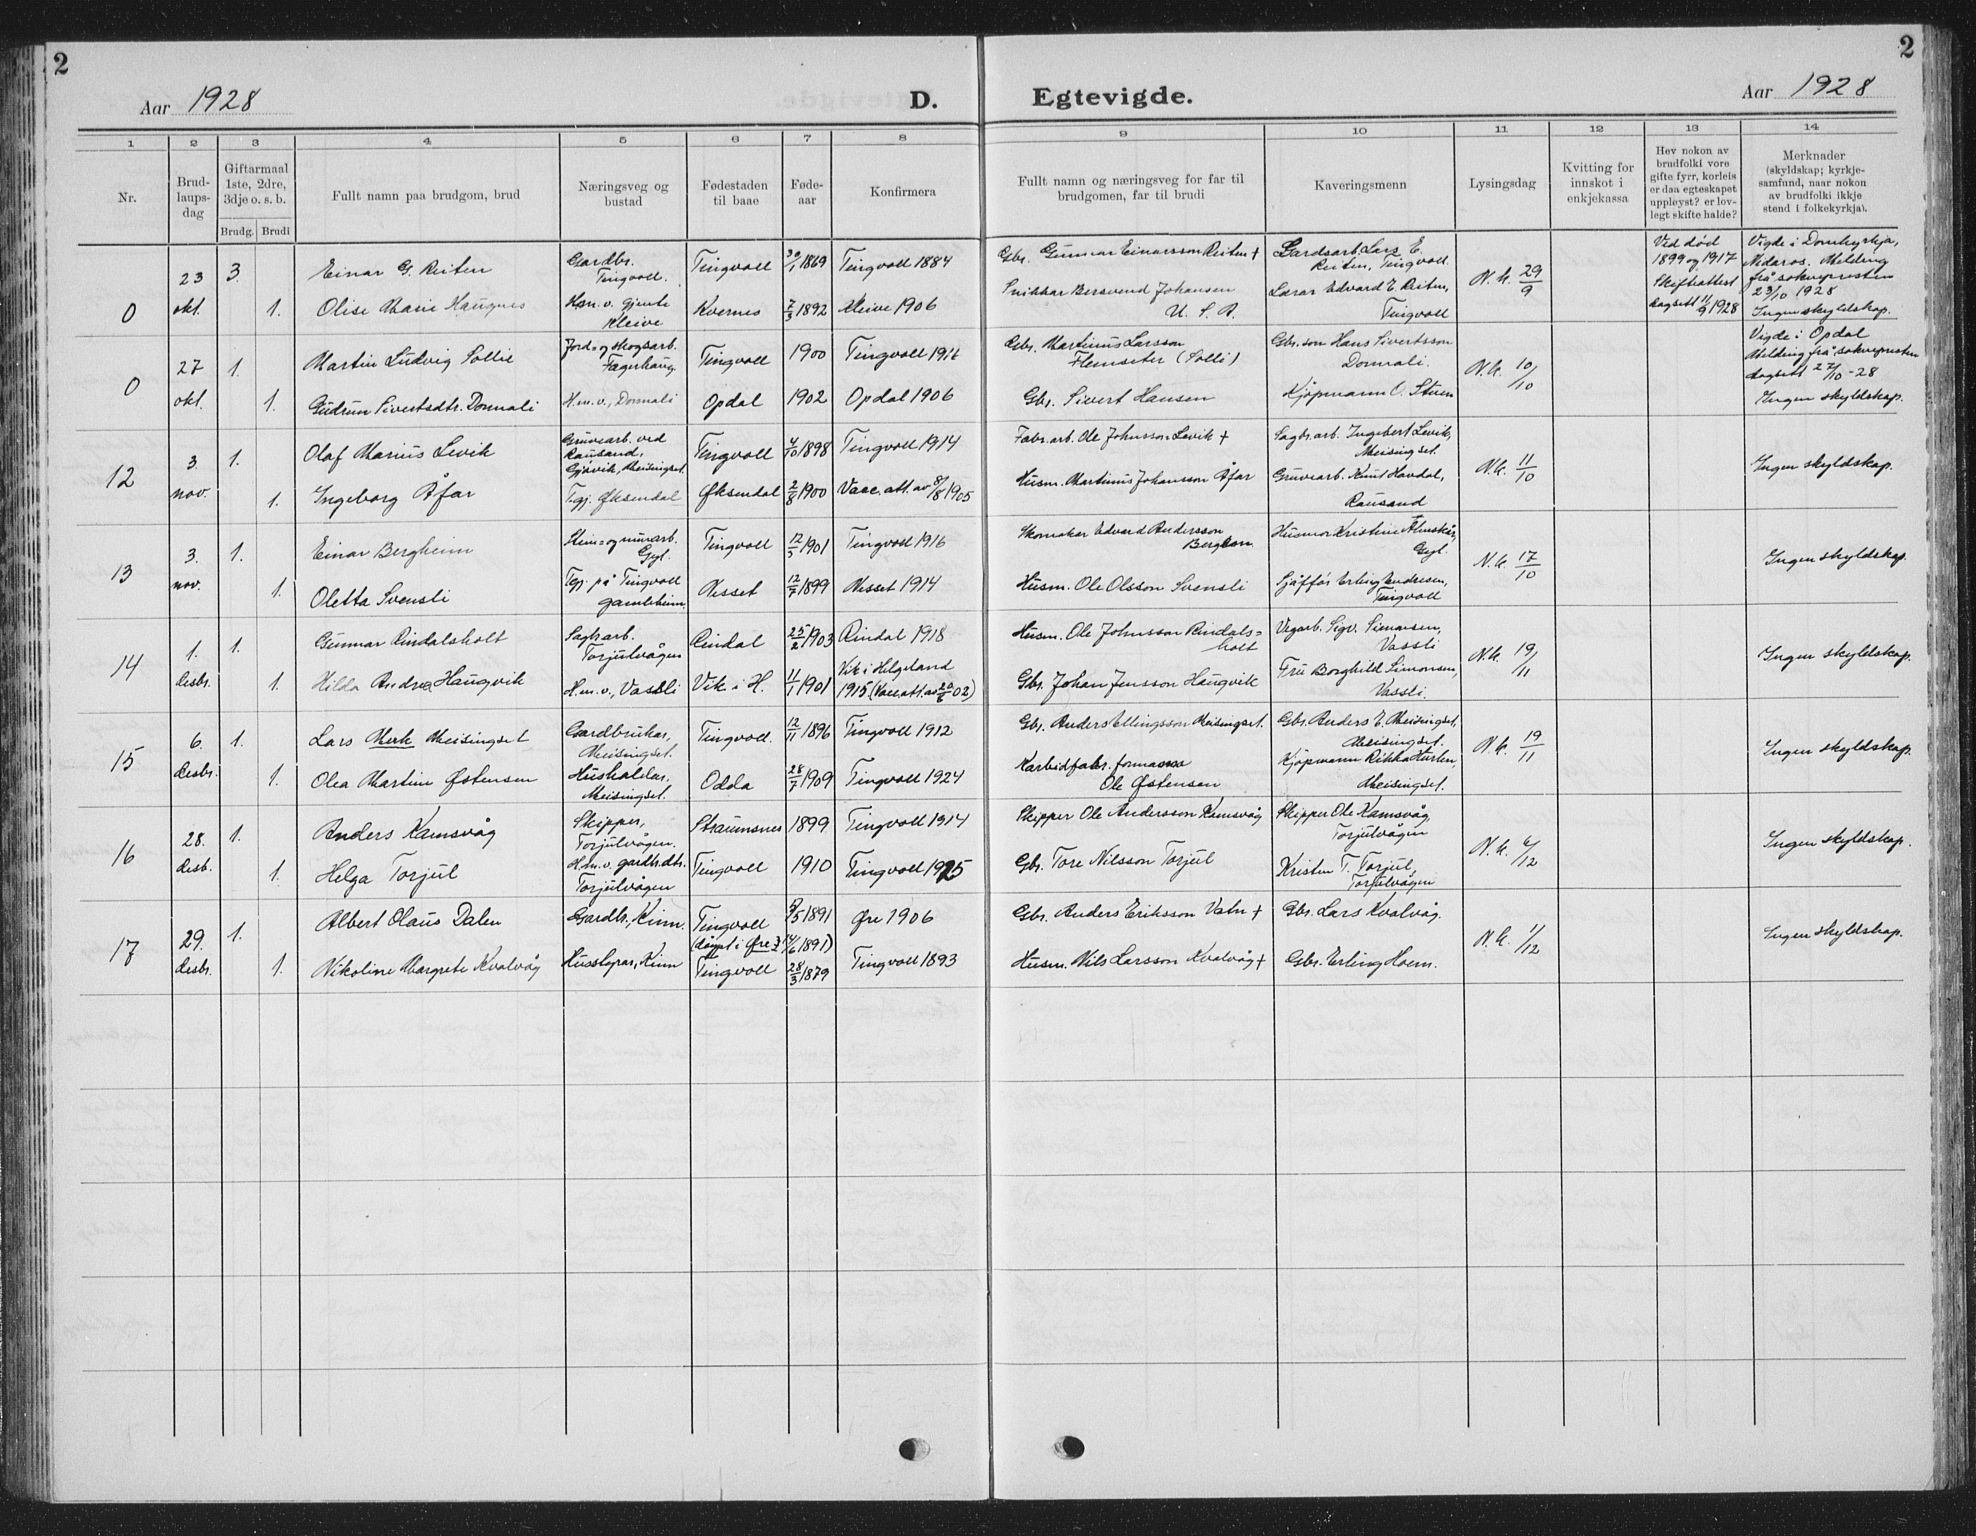 2
2
Aar 1928
D.
Egtevigde.
Aar 1928
1 2 3 4 5 6 7 8 9 10 11 12 13 14
Nr.
Brud-
laups-
dag
Giftarmaal
1ste, 2dre,
3dje o. s. b.
Brudg. Brudi
Fullt namn paa brudgom, brud
Næringsveg og
bustad
Fødestaden
til baae
Føde-
aar
Konfirmera
Fullt namn og næringsveg for far til
brudgomen, far til brudi
Kaveringsmenn
Lysingsdag
Kvitting for
innskot i
enkjekassa
Hev nokon av
brudfolki vore
gifte fyrr, korleis
er daa egteskapet
uppløyst? er lov-
legt skifte halde?
Merknader
(skyldskap; kyrkje-
samfund, naar nokon
av brudfolki ikkje
stend i folkekyrkja).
0
23
okt.
3.
Einar G. Reiten
Gardbr.
Tingvoll.
Tingvoll
30/1 1869
Tingvoll 1884
Gbr. Gunnar Einarsson Reiten +
Gardsarb. Lars E.
Reiten, Tingvoll
1.
Olise Marie Haugnes
Hm. v. Gjemte
Kleive
Kvernes
7/3 1892
Kleive 1906
Snikkar Bersvend Johansen
U. S. A.
Lærar Edvard E. Reiten,
Tingvoll
N.k. 29/9
Ved død
1899 og 1917
Skifteattest
dagsett 11/9 1928
Vigde i Domkyrkja,
Nidaros. Melding
frå soknepresten
23/10 1928
Ingen skyldskap.
0
27
okt.
1.
Martin Ludvig Sollie
Jord- og skogsarb.
Fagerhaug
Tingvoll
1900
Tingvoll 1916
Gbr. Martinus Larsson
Flemseter (Solli)
Gbr. son Hans Sivertsson
Donnali.
1.
Gudrun Sivertsdtr. Donnali
H.m.v., Donnali
Opdal
1902
Opdal 1906
Gbr. Sivert Hansen
Kjøpmann O. Stuen
N.k. 10/10
Vigde i Opdal
Melding frå soknepresten
dagsett 27/10-28
Ingen skyldskap.
12
3.
nov.
1.
Olaf Marius Levik
Gruvearb. ved
Rausand,
Gjøvik, Meisingset.
Tingvoll
4/10 1898
Tingvoll 1914
Fabr.arb. Ole Johnsson Levik +
Sagbr.arb. Ingebert Levik,
Meisingset.
1.
Ingeborg Åfar
Tgj. Øksendal
Øksendal
2/8 1900
Vacc.att. av 8/8 1905
Husm. Martinus Johansson Åfar
Gruvearb. Knut Havdal,
Rausand
N.k. 11/10
Ingen skyldskap.
13
3.
nov.
1.
Einar Bergheim
Stein- og murarb.
Gyl.
Tingvoll
12/5 1901
Tingvoll 1916
Skomaker Edvard Andersson
Husmor Kristine
Gyl
1.
Oletta Svensli
Tgj. på Tingvoll
gamleheim
Nesset
12/7 1899
Nesset 1914
Husm. Ole Olsson Svensli
Sjåffør Erling Endresen,
Tingvoll
N.k. 17/10
Ingen skyldskap.
14
1.
desbr.
1.
Gunnar Rindalsholt
Sagbr.arb.
Torjulvågen
Rindal
25/2 1903
Rindal 1918
Husm. Ole Johnsson Rindals-
holt
Vegarb. Sigv. Simonsen,
Vassli
1.
Hilda Andrea Haugvik
H.m.v., Vassli
Vik i H.
11/1 1901
Vik i Helgeland
1915 (Vacc.att. av 20/6 02)
Gbr. Johan Jensson Haugvik
Fru Borghild Simonsen,
Vassli.
N.k. 19/11
Ingen skyldskap.
15
6.
desbr.
1.
Lars Merk Meisingset
Gardbrukar,
Meisingset.
Tingvoll.
12/11 1896
Tingvoll 1912
Gbr. Anders Ellingsson Meisingset.
Gbr. Anders E. Meisingset,
Meisingset.
1.
Olea Martine Østensen
Hushaldar,
Meisingset.
Odda
28/7 1909
Tingvoll 1924
Karbidfabr. formann
Ole Østensen
Kjøpmann Rikka Hurlen,
Meisingset.
N.k. 19/11
Ingen skyldskap.
16
28.
desb.
1.
Anders Kamsvåg
Skipper,
Torjulvågen.
Straumsnes
1899
Tingvoll 1914
Skipper Ole Andersson Kamsvåg
Skipper Ole Kamsvåg,
Torjulvågen
1.
Helga Torjul
H.m.v. gardbr.dtr.
Torjulvågen
Tingvoll
1910
Tingvoll 1925
Gbr. Tore Nilsson Torjul
Kristen T. Torjul,
Torjulvågen
N.k. 6/12
Ingen skyldskap.
17
29.
desbr.
1.
Albert Olaus Dalen
Gardbr., Kinn.
Tingvoll
(døypt i Øre 14/6 1891)
9/5 1891
Øre 1906
Gbr. Anders Eriksson Vatn +
Gbr. Lars Kvalvåg.
1.
Nikoline Margrete Kvalvåg
Husstyrar, Kinn
Tingvoll
28/3 1879
Tingvoll 1893
Husm. Nils Larsson Kvalvåg +
Gbr. Erling Hoem.
N.k. 1/12
Ingen skyldskap.